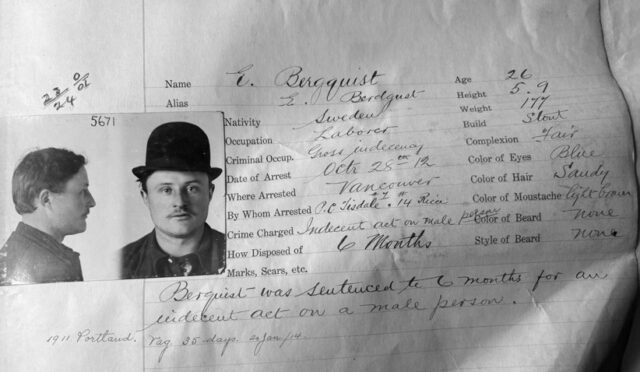 5671
Name E. Bergquist
Age 26
Alias E. Berdqust
Height 5.9
Nativity Sweden
Weight 177
Occupation Laborer
Build Stout
Criminal Occup. Gross indecency
Complexion Fair
Date of Arrest Octr 28th 12
Color of Eyes Blue
Where Arrested Vancouver
Color of Hair Sandy
By Whom Arrested P.C. Tisdale #14 Rice
Color of Moustache light brown
Crime Charged Indecent act on male person
Color of Beard none
How Disposed of 6 Months
Style of Beard none
Marks, Scars, etc.
Berquist was sentenced to 6 months for an
indecent act on a male person.
1911 Portland. Vag 30 days.